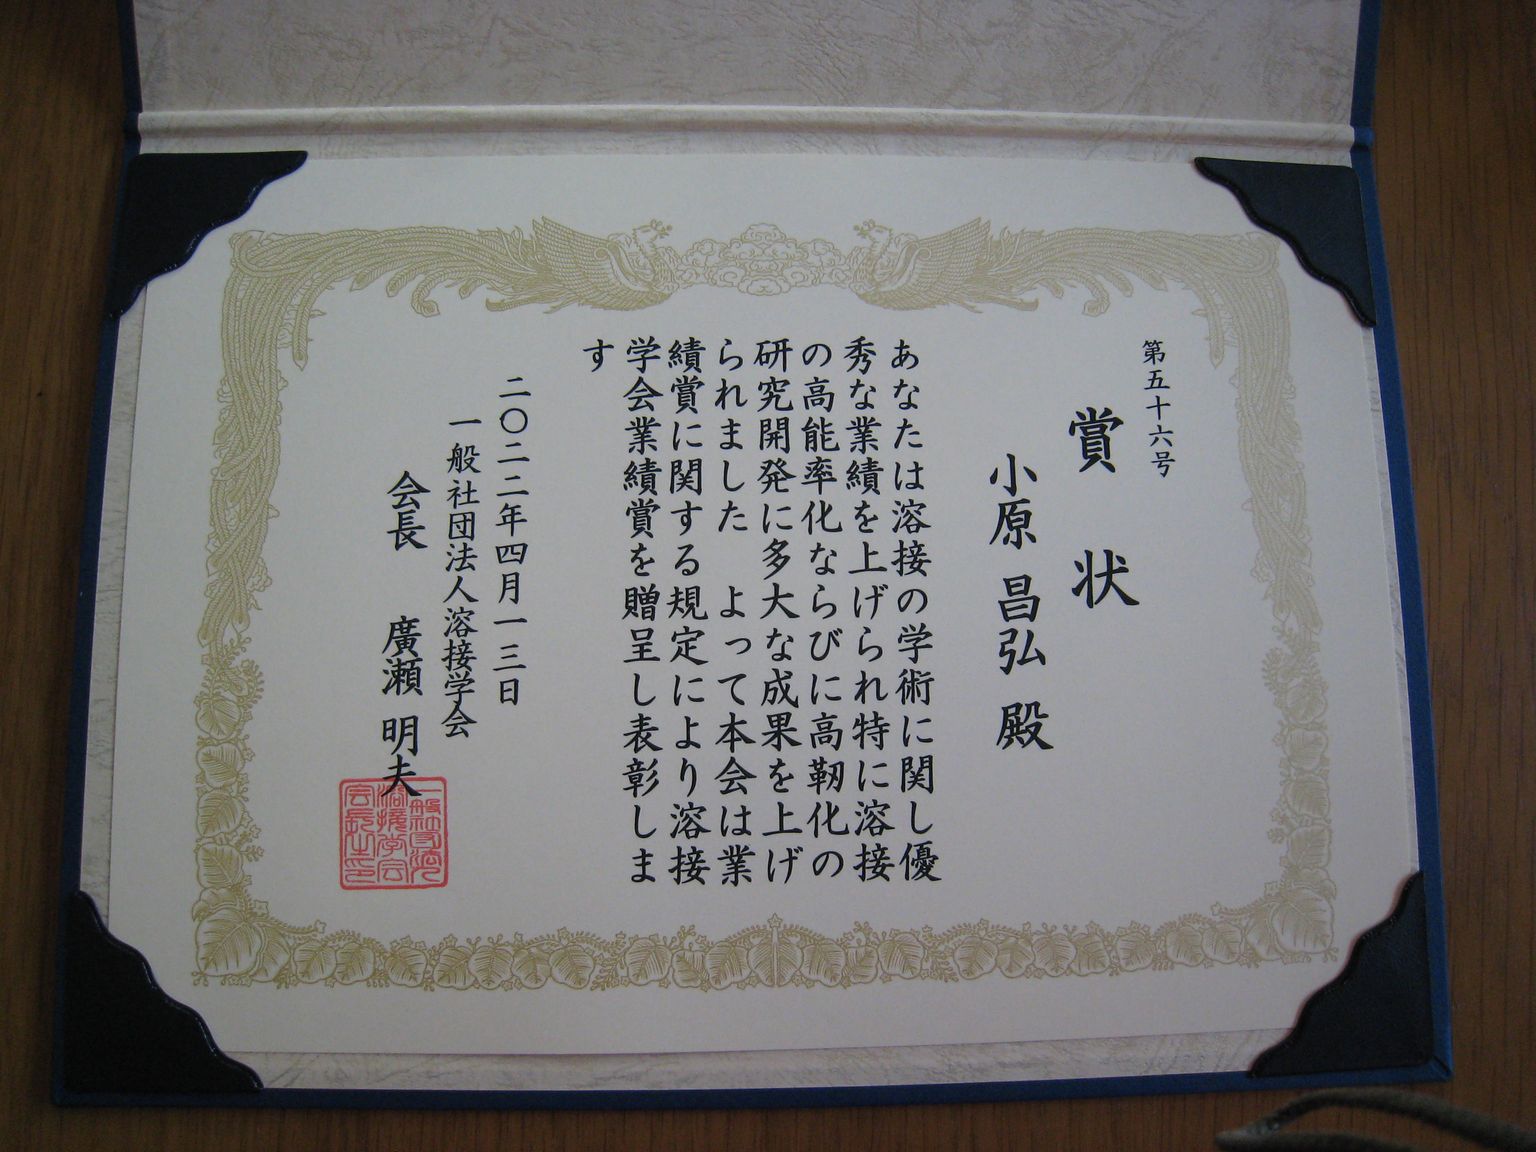 第五十六号
賞状
小原昌弘殿
あなたは溶接の学術に関し優
秀な業績を上げられ特に溶接
の高能率化ならびに高靭化の
研究開発に多大な成果を上げ
られました　よって本会は業
績賞に関する規定により溶接
学会業績賞を贈呈し表彰しま
す
二〇二二年四月一三日
一般社団法人溶接学会
会長　廣瀬明夫
一般社団法人
溶接学会
会長之印